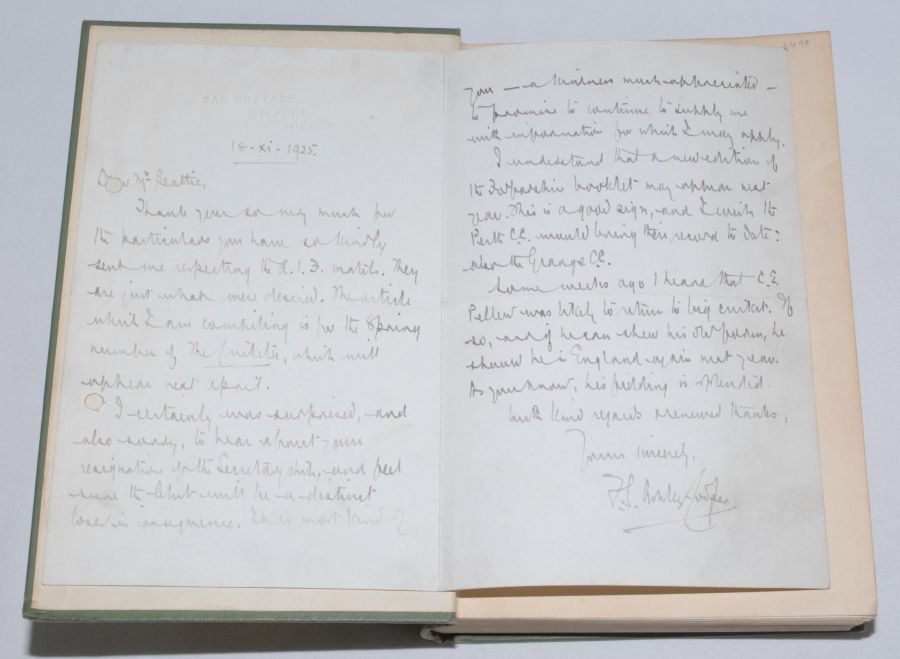 OAK COTTAGE,
MILFORD,
SURREY.
18-xi-1925.
Dear Mr Beattie,
Thank you so very much for
the particulars you have so kindly
sent me respecting the A.I.F. match. They
are just what were desired. The article
which I am compiling is for the Spring
number of The Cricketer, which will
appear next April.
I certainly was surprised, and
also sorry, to hear about your
resignation of the Secretaryship, and feel
sure the Club will be a distinct
loser in consequence. It is most kind of
you — a kindness much appreciated —
to promise to continue to supply me
with information for which I may apply.
I understand that a new edition of
the booklet may appear next
year. This is a good sign, and I wish the
Perth C.C. would bring their record to date:
also the Grange C.C.
Some weeks ago I heard that C.E.
Pellew was likely to return to big cricket. If
so, and if he can shew his old form, he
should be in England again next year.
As you know, his fielding is splendid.
With kind regards & renewed thanks,
Yours sincerely,
F.S. Ashley-Cooper.